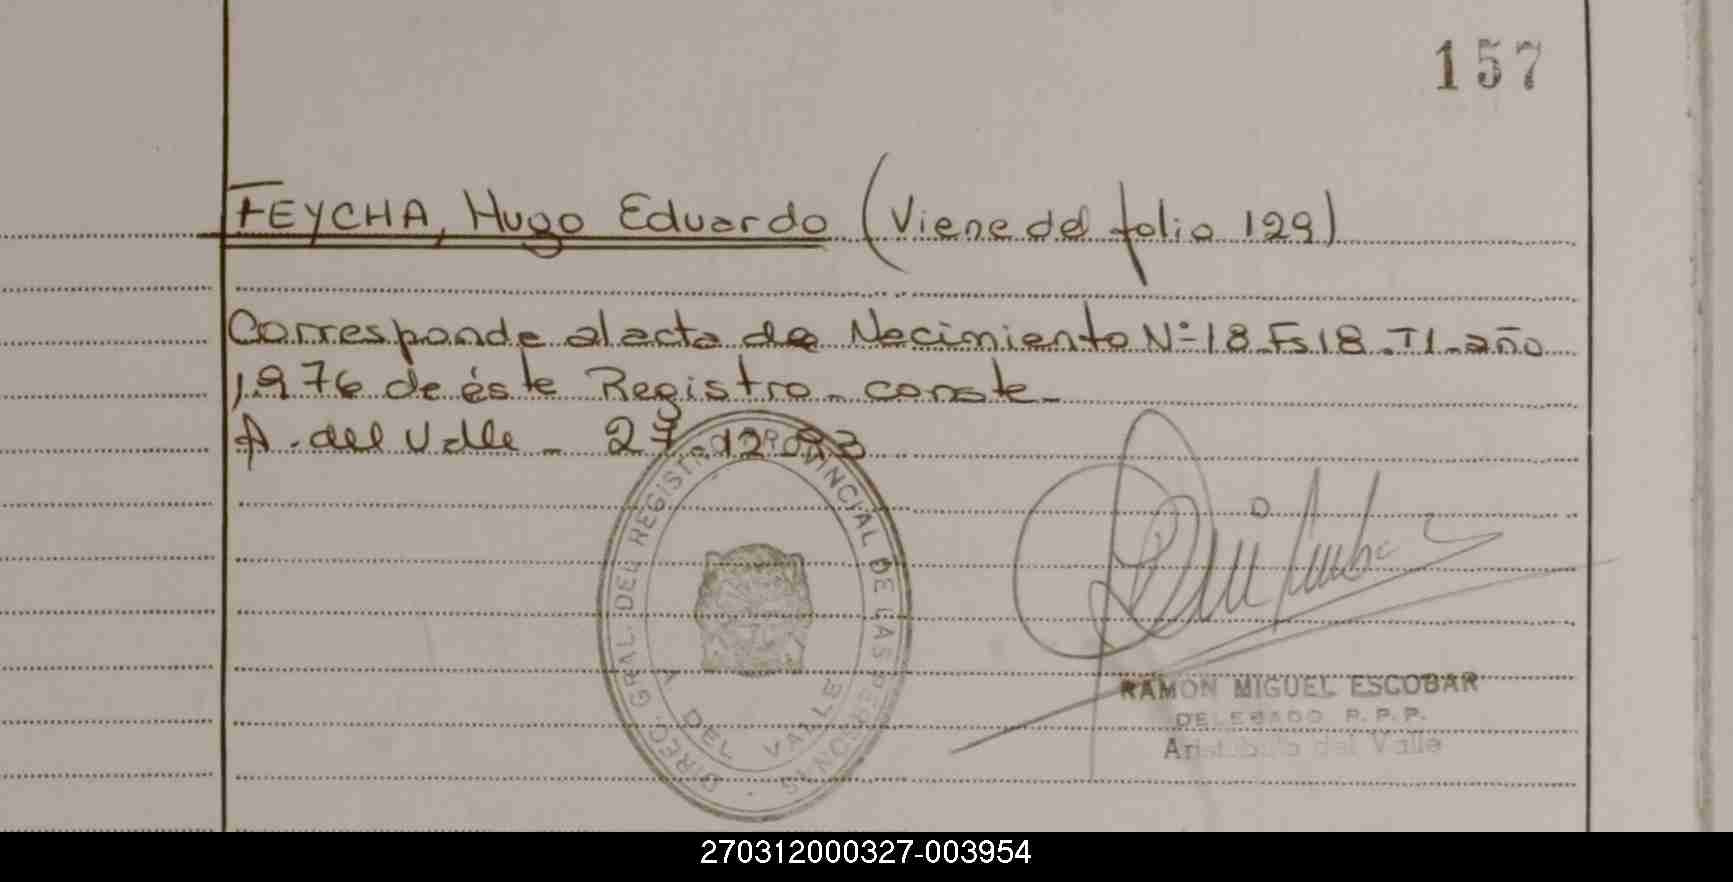 157
FEYCHA, Hugo Eduardo (Viene del folio 129)
Corresponde al acta de Nacimiento Nº 18 Fs 18 T1 año
1976 de éste Registro. conste_
A. del Valle _ 27.12.93
DIREC. GRAL. DEL REGISTRO PROVINCIAL DE LAS PERSONAS
A. DEL VALLE
RAMON MIGUEL ESCOBAR
DELEGADO R. P. P.
Aristobulo del Valle
270312000327-003954